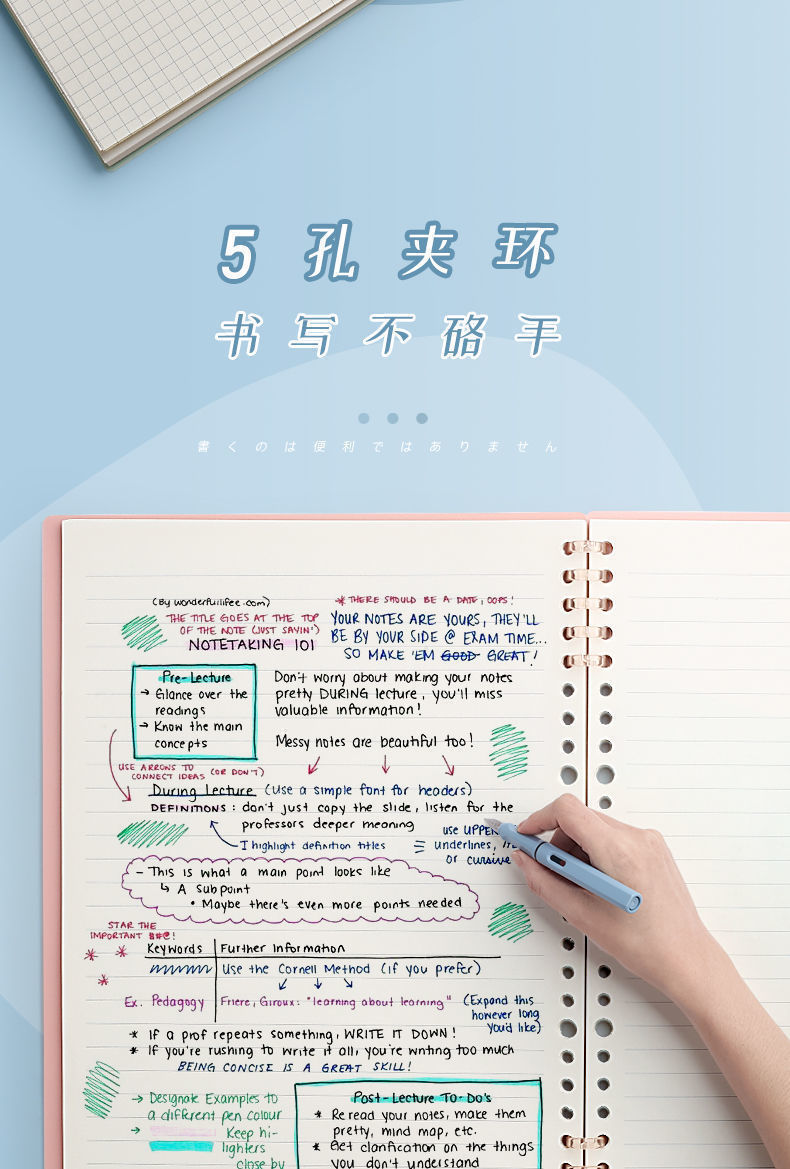 5孔夹环
书写不硌手
書くのは便利ではありません
(By wonderfulifee.com)
* THERE SHOULD BE A DATE, OOPS!
THE TITLE GOES AT THE TOP
OF THE NOTE (JUST SAYIN')
NOTETAKING 101
YOUR NOTES ARE YOURS, THEY'LL
BE BY YOUR SIDE @ EXAM TIME...
SO MAKE 'EM GOOD GREAT!
Pre-Lecture
→ Glance over the
readings
→ Know the main
concepts
Don't worry about making your notes
pretty DURING lecture, you'll miss
valuable information!
Messy notes are beautiful too!
USE ARROWS TO
CONNECT IDEAS (OR DON'T)
During Lecture (Use a simple font for headers)
DEFINITIONS: don't just copy the slide, listen for the
professors deeper meaning
I highlight definition titles
use UPPER
underlines,
or cursive
- This is what a main point looks like
↳ A Subpoint
• Maybe there's even more points needed
STAR THE
IMPORTANT $#@!
Keywords Further Information
Use the Cornell Method (if you prefer)
Ex. Pedagogy Friere, Giroux: "learning about learning"
(Expand this
however long
you'd like)
* If a prof repeats something, WRITE IT DOWN!
* If you're rushing to write it all, you're writing too much
BEING CONCISE IS A GREAT SKILL!
→ Designate Examples to
a different pen colour
→ Keep hi-
lighters
close by
Post-Lecture To-Do's
* Reread your notes, make them
pretty, mind map, etc.
* Get clarification on the things
you don't understand